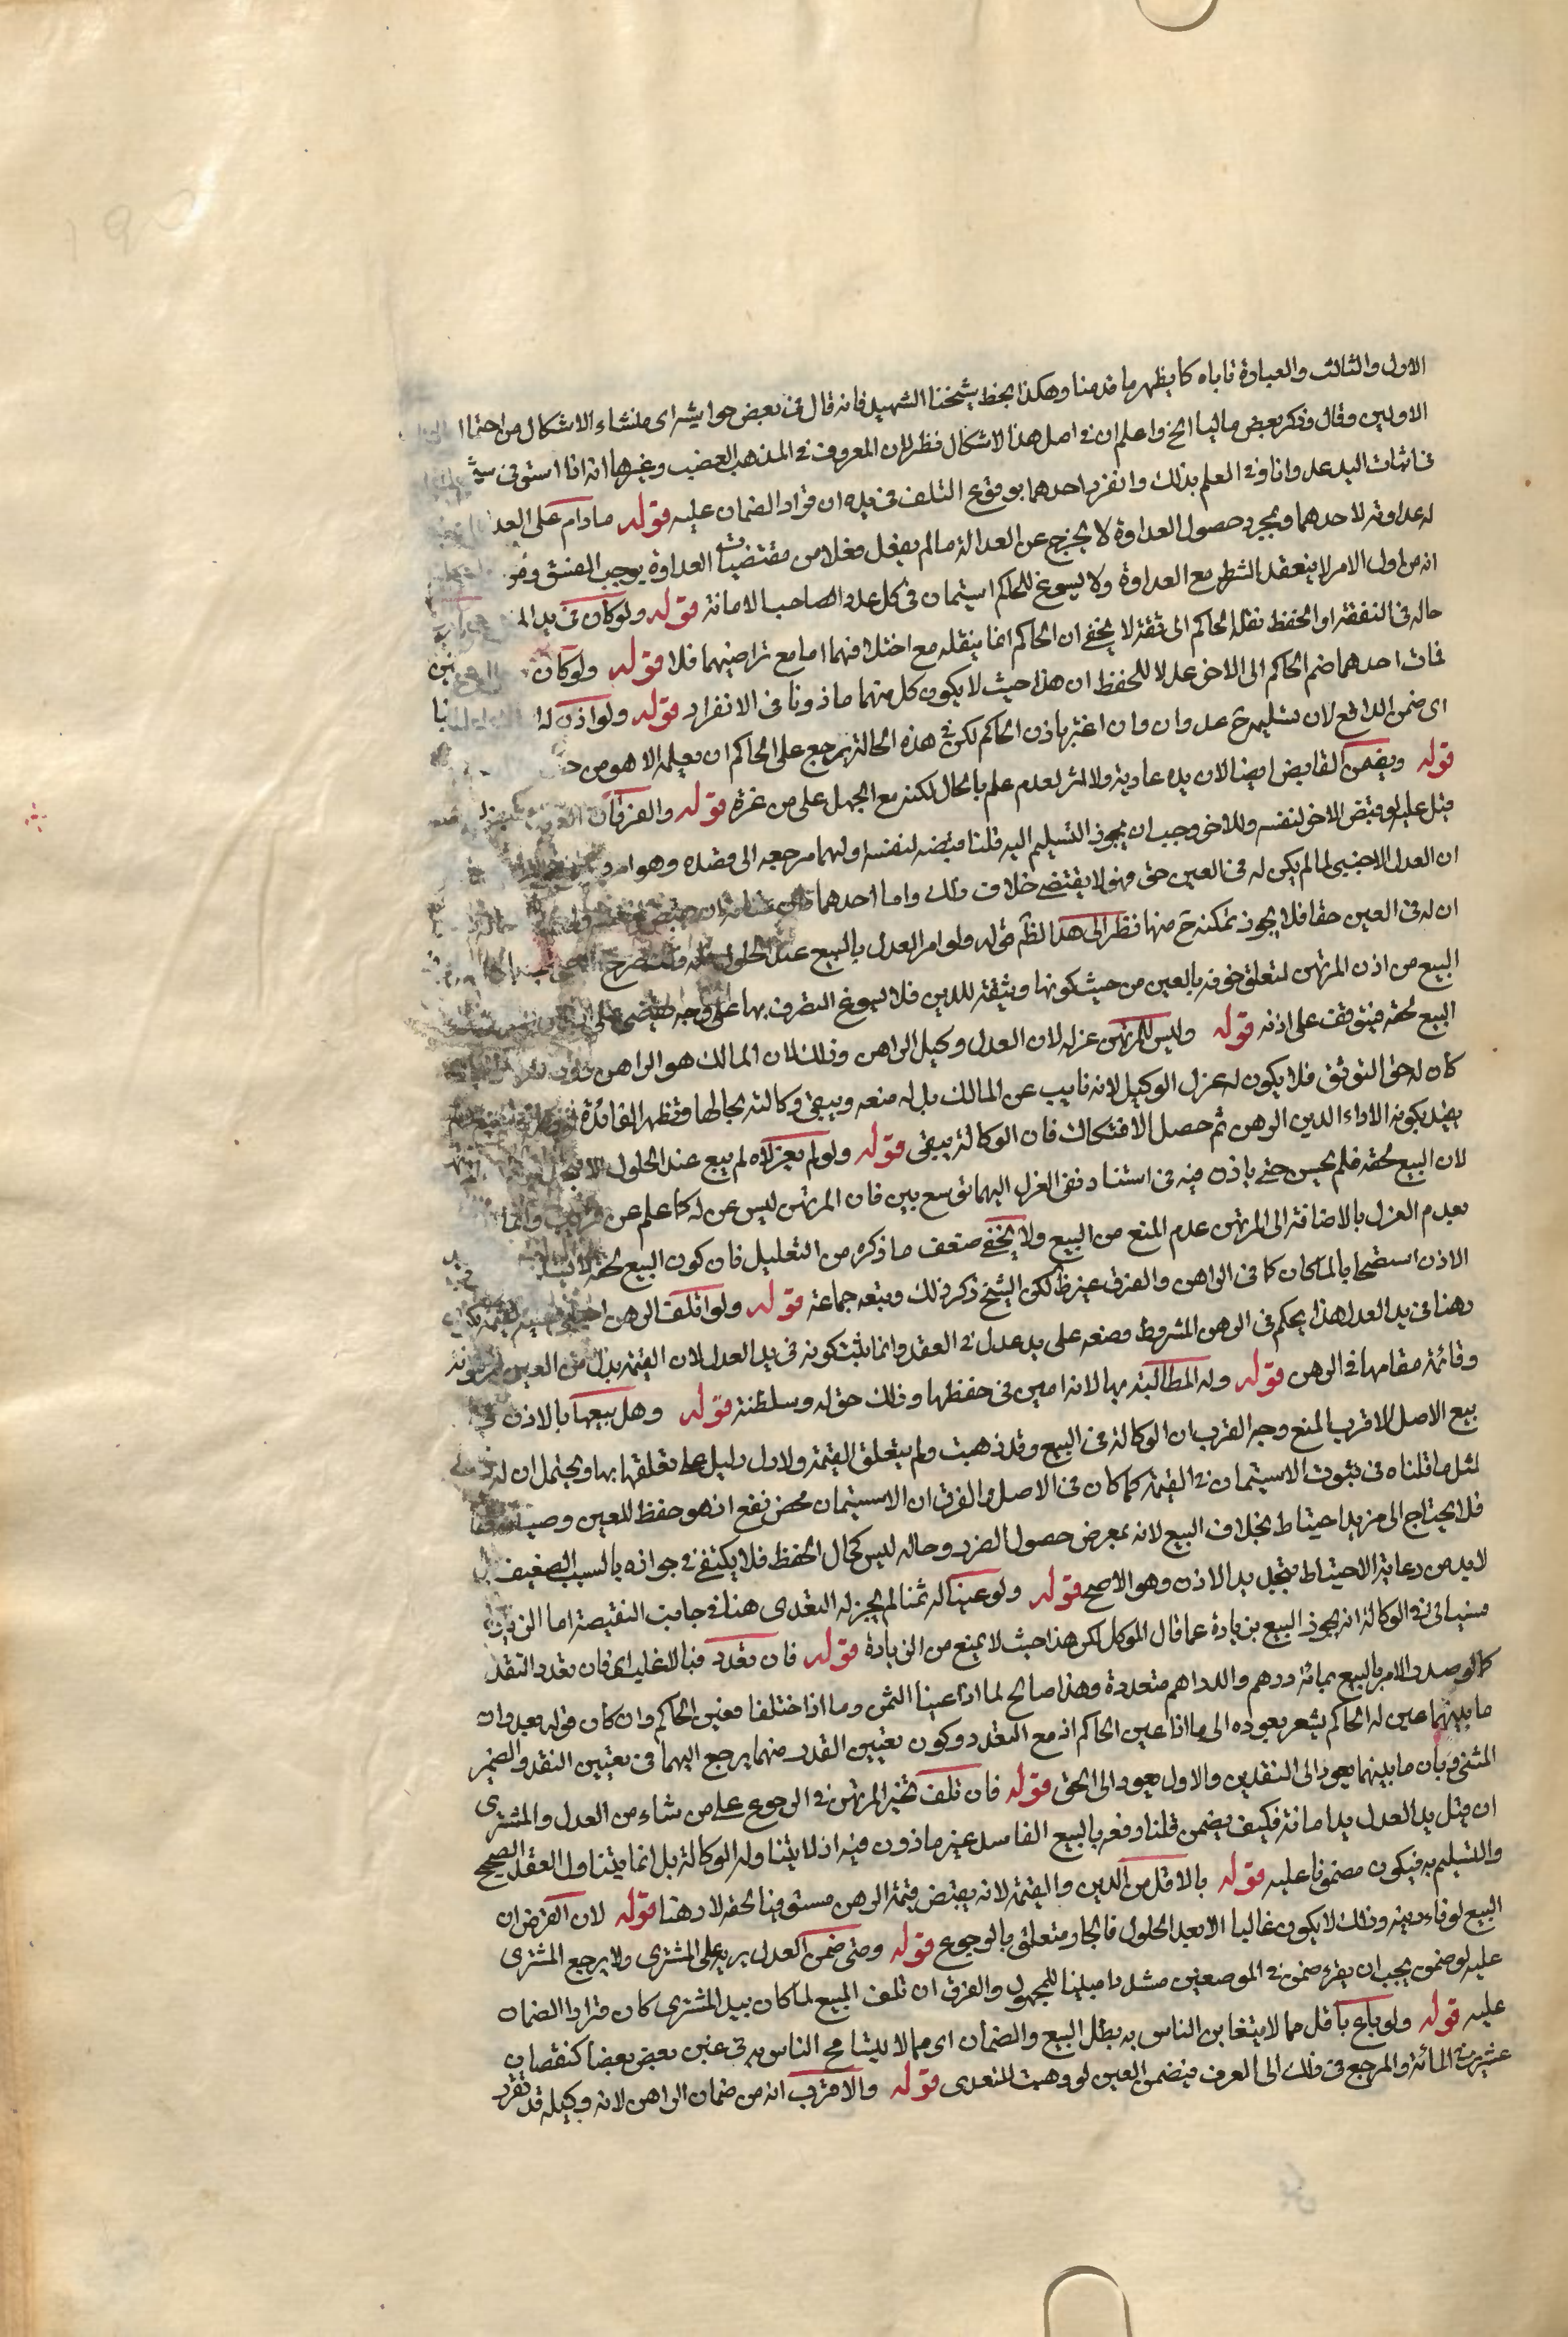 الاول والثالث والعبارة تاباه كما يظهر ما قدمنا وهكذا بخط شيخنا الشهيد فانه قال في بعض حواشيه اى منشاء الاشكال من احتما
الاولين وقال وذكر بعض ما ليا الخ واعلم ان في اصل هذا الاشكال نظر لان المعروف في المذهب الغضب وغيرها انه اذا استوى في سبب
في اثبات اليد عدوانا وفي العلم بذلك وانفرد احدهما بوقوع التلف في يده ان قرار الضمان عليه قوله مادام على العد
له عداوته لاحدهما وبمجرد حصول العداوة لا يخرج عن العدالة ما لم يفعل فعلا من مقتضيات العداوة يوجب الفسق
انه من اول الامر لا ينعقد الشطر مع العداوة ولا يسوغ للحاكم استيمان في كل عدو الصاحب الامانة قوله ولو كان في يد
حاله في النفقة او الحفظ نقله الحاكم الى ثقة لا يخفى ان الحاكم انما ينقله مع اختلافهما اما مع تراضيهما فلا قوله ولو كان
فمات احدهما ضم الحاكم الى الاخر عدلا للحفظ ان هذا حيث لا يكون كل منهما ماذونا في الانفراد قوله ولو اذن له
اى ضمن الدافع لان تسليمه ح عدوان وان اغتر باذن الحاكم لكن في هذه الحالة يرجع على الحاكم ان يعلمه الاهو من
قوله ويضمن القابض ايضا لان يده عادية ولا اثر لعدم علم بالحال لكنه مع الجهل على من غره قوله والفرق ان
قيل عليه لو قبض الاخر لنفسه وللاخر وجب ان يجوز التسليم اليه قلنا قبضه لنفسه اولهما مرجعه الى قصده وهو امر
ان العدل الاجنبى لما لم يكن له في العين حق فهو لا يقتضى خلاف ذلك واما احدهما
ان له في العين حقا فلا يجوز تمكنه ح منها نظر الى هذا لظم قوله ولو امر العدل بالبيع عند الحلول
البيع من اذن المرتهن لتعلق حقه بالعين من حيث كونها وثيقة للدين فلا يسوغ التصرف بها على وجه
البيع لحقه فيتوقف على اذنه قوله وليس للمرتهن عزله لان العدل وكيل الراهن وذلك لان المالك هو الراهن
كان له حق التوثق فلا يكون له عزل الوكيل لانه نايب عن المالك بل له منعه ويبقى وكالته بحالها فتظهر الفائدة
يعتد بكونه الاداء الدين الرهن ثم حصل الافتكاك فان الوكالة يبقى قوله ولو لم يعزلاه لم يبع عند الحلول الا
لان البيع لحقه فلم يحسن حتى ياذن فيه في استناد نفى العزل اليهما توسع بين فان المرتهن ليس عن له كما علم عن
بعدم العزل بالاضافة الى المرتهن عدم المنع من البيع ولا يخفى ضعف ما ذكره من التعليل فان كون البيع لحقه لا
الاذن استصحابا لما كان كما في الراهن والفرق غير ظ لكن الشيخ ذكر ذلك وتبعه جماعة قوله ولو اتلف الرهن
رهنا في يد العدل هذا يحكم في الرهن المشروط وضعه على يد عدل في العقد وانما يثبت كونه في يد العدل لان القيمة بدل من العين
وقائمة مقامها في الرهن قوله وله المطالبة بها لانه امين في حفظها وذلك حق له وسلطنة قوله وهل بيعها بالاذن في
بيع الاصل الاقرب المنع وجه القرب ان الوكالة في البيع وقد ذهبت ولم يتعلق القيمة ولا دل دليل على تعلقها بها ويحتمل ان له
لمثل ما قلناه في ثبوت الاستيمان في القيمة كما كان في الاصل والفرق ان الاستيمان محض نفع اذ هو حفظ للعين
فلا يحتاج الى مزيد احتياط بخلاف البيع لانه بمعرض حصول الضرر وحاله ليس كحال الحفظ فلا يكتفى في جوازه بالسبب الضعيف بل
لابد من رعاية الاحتياط بتجديد الاذن وهو الاصح قوله ولو عينا له ثمنا لم يجز له التعدى هذا في جانب النقيصة اما الزيادة
فسياتى في الوكالة انه يجوز البيع بزيادة عما قال الموكل لكن هذا حيث لا يمنع من الزيادة قوله فان تعدد فبالاغلب اى فان تعدد النقد
كما لو صدر الامر بالبيع بمائة درهم والدراهم متعددة وهذا صالح لما اذا عينا الثمن وما اذا اختلفا فعين الحاكم وان كان قوله بعد وان
ما بينهما عين له الحاكم يشعر بعوده الى ما اذا عين الحاكم اذ مع التعدد وكون تعيين القدر منهما يرجع اليهما في تعيين النقد والضمير
المثنى وبان ما بينهما يعود الى النقدين والاول يعود الى الحق قوله فان تلف تخير المرتهن في الرجوع على من شاء من العدل والمشترى
ان قيل يد العدل يد امانة فكيف يضمن قلنا دفعه بالبيع الفاسد غير ماذون فيه اذ لا يتناوله الوكالة بل انما يتناول العقد الصحيح
والتسليم به فيكون مضمونا عليه قوله بالاقل من الدين والقيمة لانه يقبض قيمة الرهن مستوفيا لحقه لا رهنا قوله لان الفرض ان
البيع لوفاء دينه وذلك لا يكون غالبا الا بعد الحلول فالجار متعلق بالرجوع قوله ومتى ضمن العدل يرجع على المشترى ولا يرجع المشترى
عليه لو ضمن يجب ان يقرء ضمن في الموضعين مشددا مبنيا للمجهول والفرق ان تلف المبيع لما كان بيد المشترى كان قرار الضمان
عليه قوله ولو باع باقل مما لا يتغابن الناس به بطل البيع والضمان اى مما لا يتسامح الناس به في غبن بعض بعضا كنقصان
عشرين المائة والمرجع في ذلك الى العرف فيضمن العين لو وهبت للتعدى قوله والاقرب انه من ضمان الراهن لانه وكيله قد تفرد